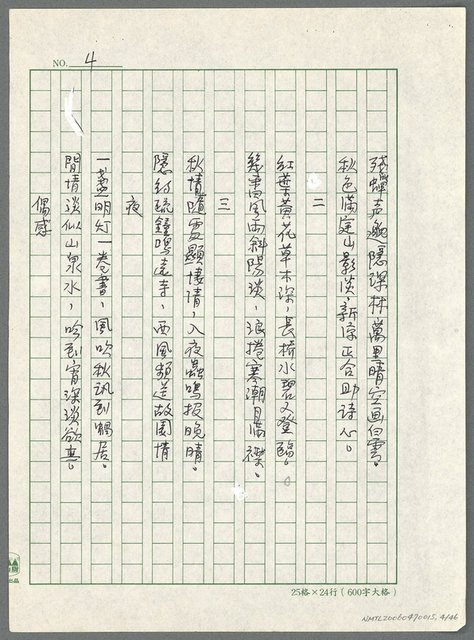 NO. 4
残蟬声迴隱深林，萬里晴空画白雲。
秋色滿庭山影淡，新涼正合助詩心。
二
紅葉黃花草木深，長桥水碧又登臨。
幾番風雨斜陽淡，浪捲寒潮月滿襟。
三
秋情隨處顯懷情，入夜蟲鳴报晚晴。
隱約疏鐘鳴遠寺，西風頻送故園情
夜
一盞明灯一卷書，風吹秋訊到 居。
閒情淡似山泉水，吟到宵深淡欲 。
偶感
25格×24行（600字大格）
NMTL20060470015, 4/46